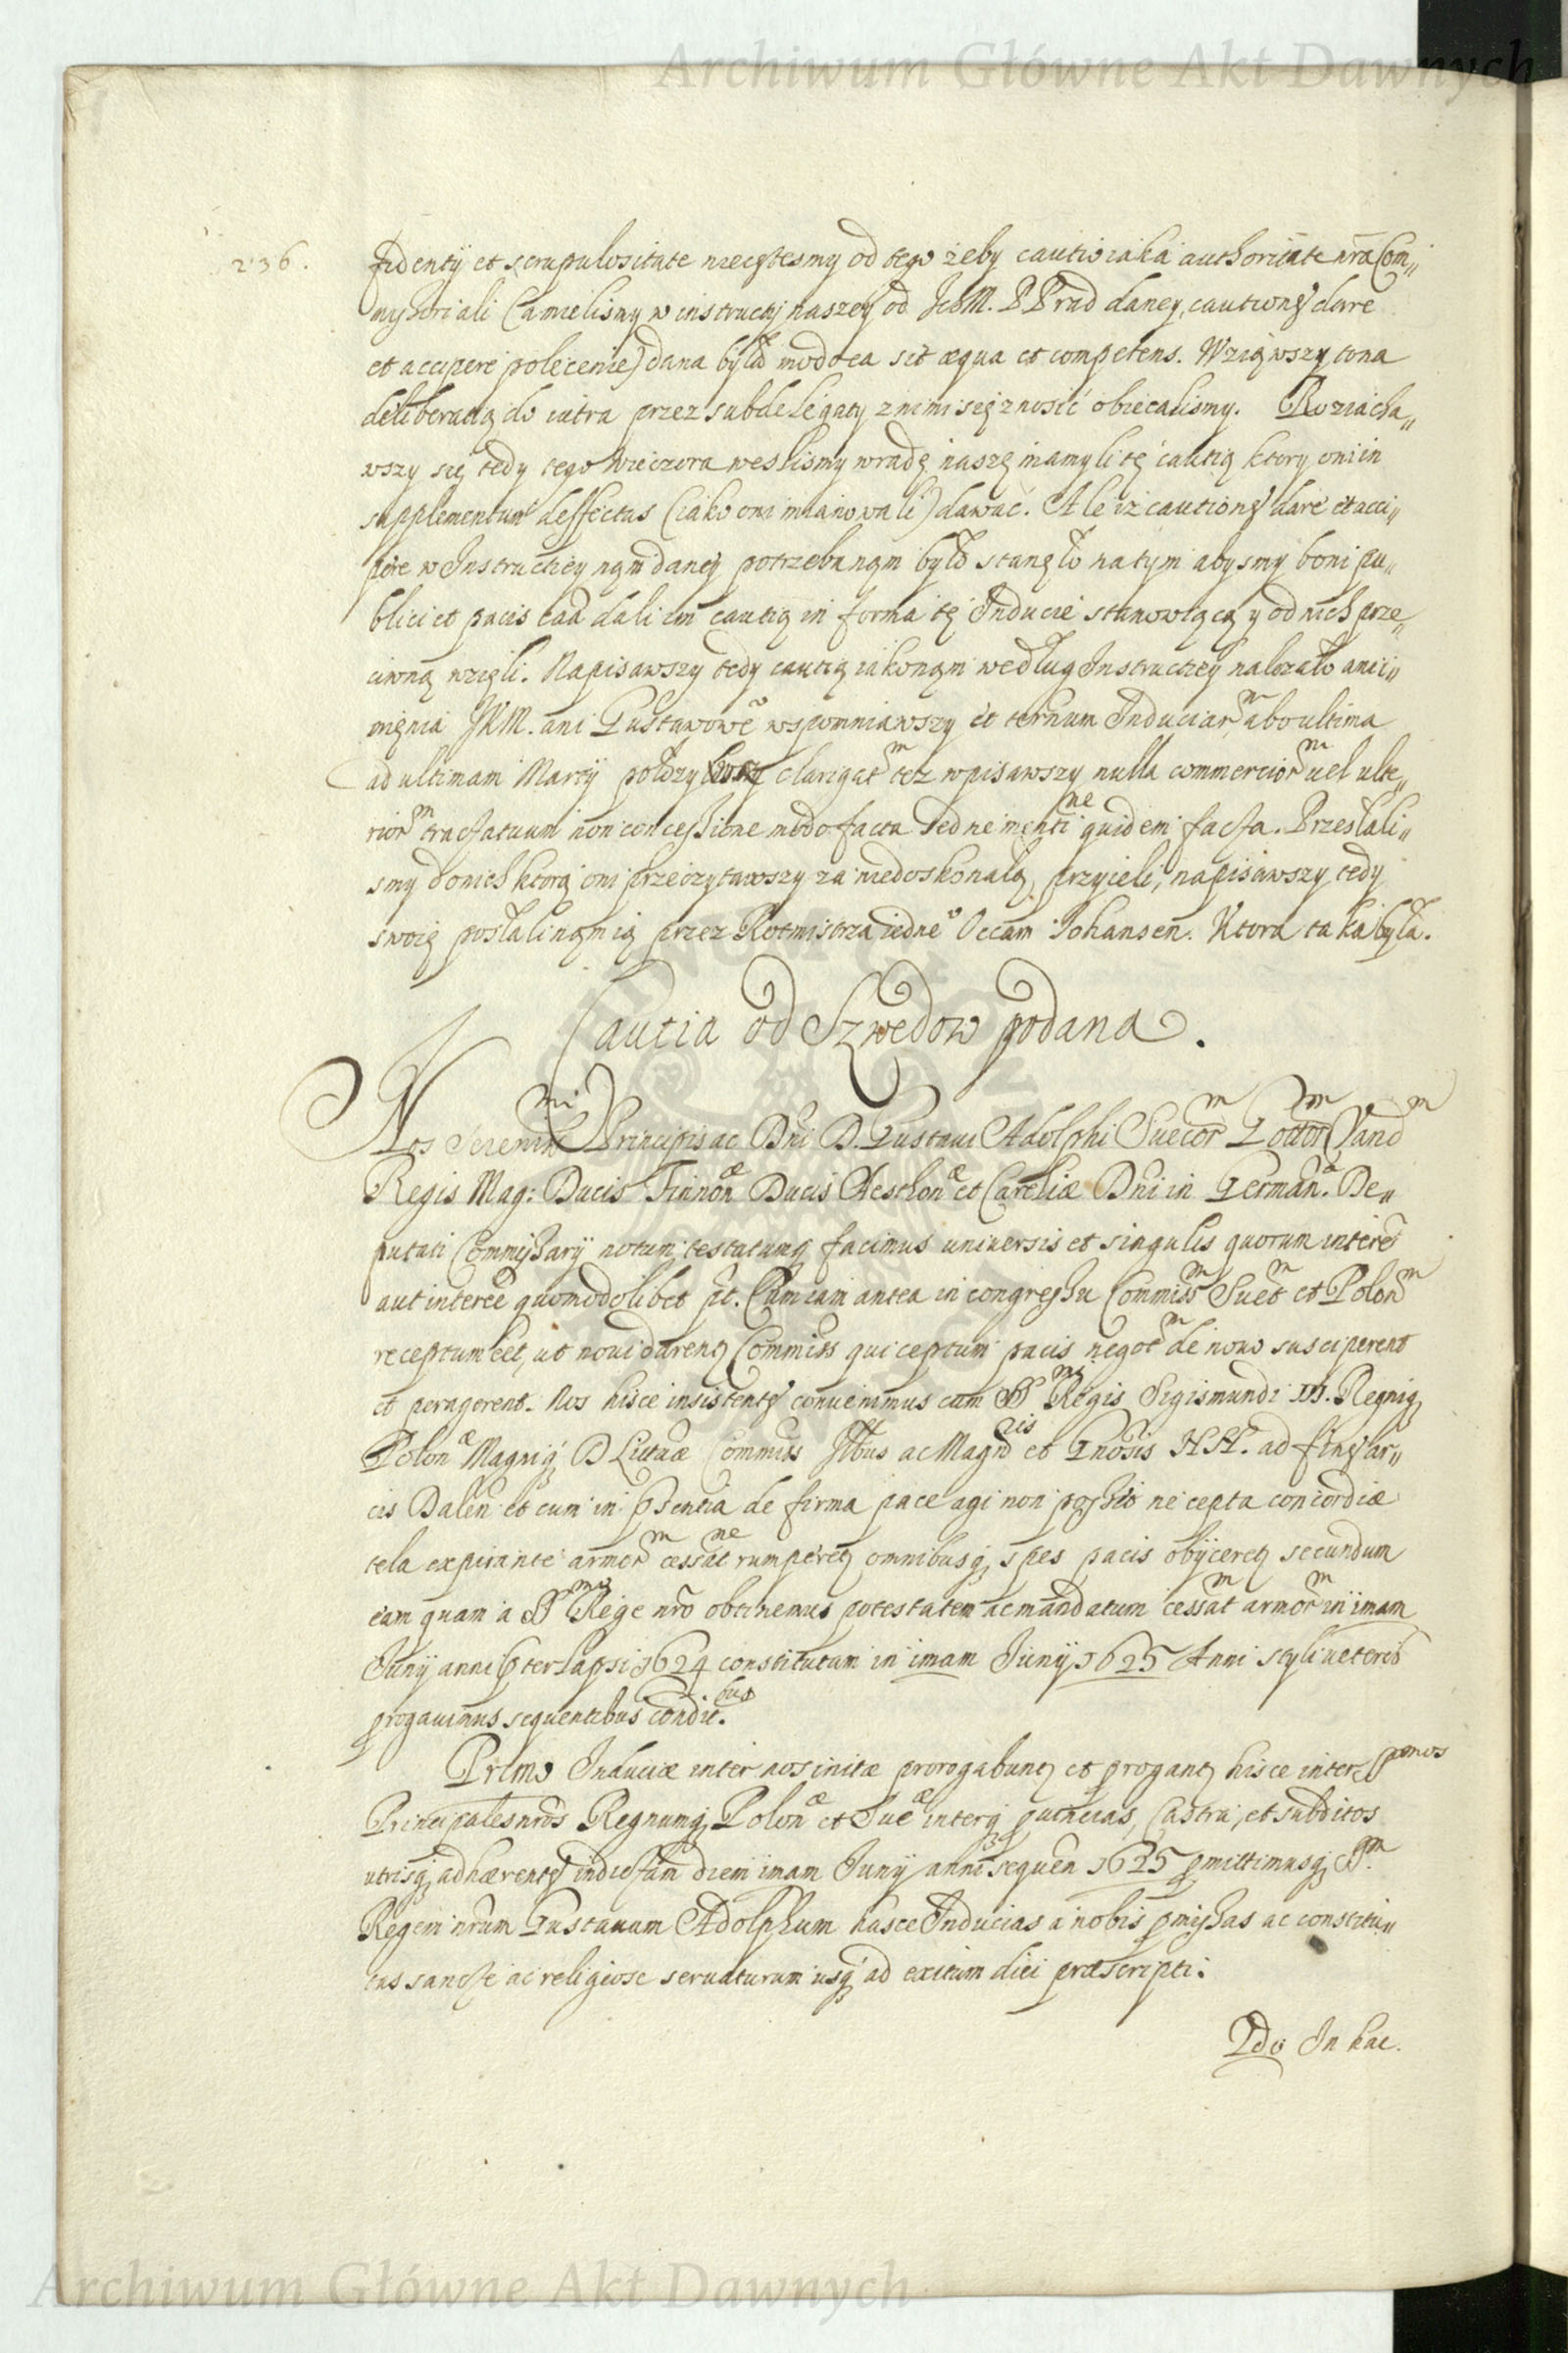 Archiwum Główne Akt Dawnych
236.
fidentij et scrupulositate niecztesmy od tego żeby cautio iaka authoritate nrã Com„
missoriali (a mielismy w instructij naszey od IchM. PP rad daney, cautiones dare
et accipere polecenie) dana była modo ea sit æqua et competens. Wziąwszy to na
deliberatią do iutra przez subdelegaty z nimi się znosić obiecalismy. Roziacha„
wszy się tedy tego wieczora weszlismy w radę naszę mamyli tę cautią ktorą oni in
supplementum deffectus (iako oni mianowali) dawać. Ale iz cautiones dare et acci„
pere w Instructiey nąm daney potrzeba nąm było stanęło na tym abysmy boni pu„
blici et pacis cãa dali im cautią in forma tę Inducie stanowiącą y od nich prze„
ciwną wzięli. Napisawszy tedy cautią iako nąm według Instructiey należało ani i„
mięnia JKM. ani Gustawowe° wspomniawszy et ternum Induciar^m abo ultima
ad ultimam Martij położy clarigat^m też wpisawszy nulla commercior^m uel ulte„
rior^m tractatuum non concessione modo facta sed ne menti^ne quidem facta. Przesłali„
smy do nich ktorą oni przeczytawszy za niedoskonałą przyieli, napisawszy tedy
swoię posłali nąm ią przez Rotmistrza iedne° Occam Johansen. Ktora taka była.
Cautia od Szwedow podana.
Nos Serenis^mi Principis ac Dñi D. Gustaui Adolphi Suecor^m Gottor^m Vand^m
Regis Mag: Ducis Finnon^æ Ducis Aesthon^æ et Careliæ Dñi in German^a. De„
putati Commissarij notum testatumq facimus uniuersis et singulis quorum interẽ
aut intereẽ quomodolibet pt. Cum iam antea in congressu Commiss^m Suet^m et Polon^m
receptum eẽt, ut noui darent Commiss qui ceptum pacis negot^m de nouo susciperent
et peragerent. Nos hisce insistentes conuenimus cum S^mi Regis Sigismundi III. Regniq
Polon^æ Magniq D Lituæ Commiss Illbus ac Magn^cis et Gnosis HH. ad fines ar„
cis Dalen et cum in psentia de firma pace agi non possit ne cepta concordiæ
tela expirante armor^m cessat^ne rumperet omnibusq spes pacis obijceret secundum
eam quam a S^mo Rege nrõ obtinemus potestatem ac mandatum cessat^m armor^m in imam
Junij anni pterlapsi 1624 constitutam in imam Junij 1625 Anni styli ueteris
progauimus sequentibus condit^bus.
Primo Induciæ inter nos initæ prorogabunt et progant hisce inter S^mos
Principales nrõs Regnumq Polon^æ et Sue^æ interq puincias, Castra, et subditos
utrisq adhærentes in dictam diem imam Junij anni sequen 1625 pmittimusq S^m.
Regem nrũm Gustauum Adolphum hasce Inducias a nobis pmissas ac constitu„
tas sancte ac religiose seruaturum usq ad exitum diei præscripti.
2do In hac.
Archiwum Główne Akt Dawnych